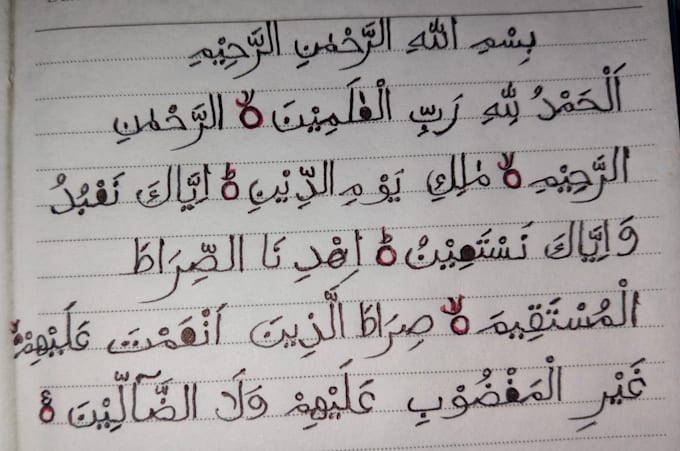 بِسْمِ اللهِ الرَّحْمٰنِ الرَّحِيْمِ
اَلْحَمْدُ لِلهِ رَبِّ الْعٰلَمِيْنَ ۙ الرَّحْمٰنِ
الرَّحِيْمِ ۙ مٰلِكِ يَوْمِ الدِّيْنِ ؕ اِيَّاكَ نَعْبُدُ
وَاِيَّاكَ نَسْتَعِيْنُ ؕ اِهْدِ نَا الصِّرَاطَ
الْمُسْتَقِيمَ ۙ صِرَاطَ الَّذِينَ اَنْعَمْتَ عَلَيْهِمْ ۙ
غَيْرِ الْمَغْضُوْبِ عَلَيْهِمْ وَلَا الضَّآلِّيْنَ